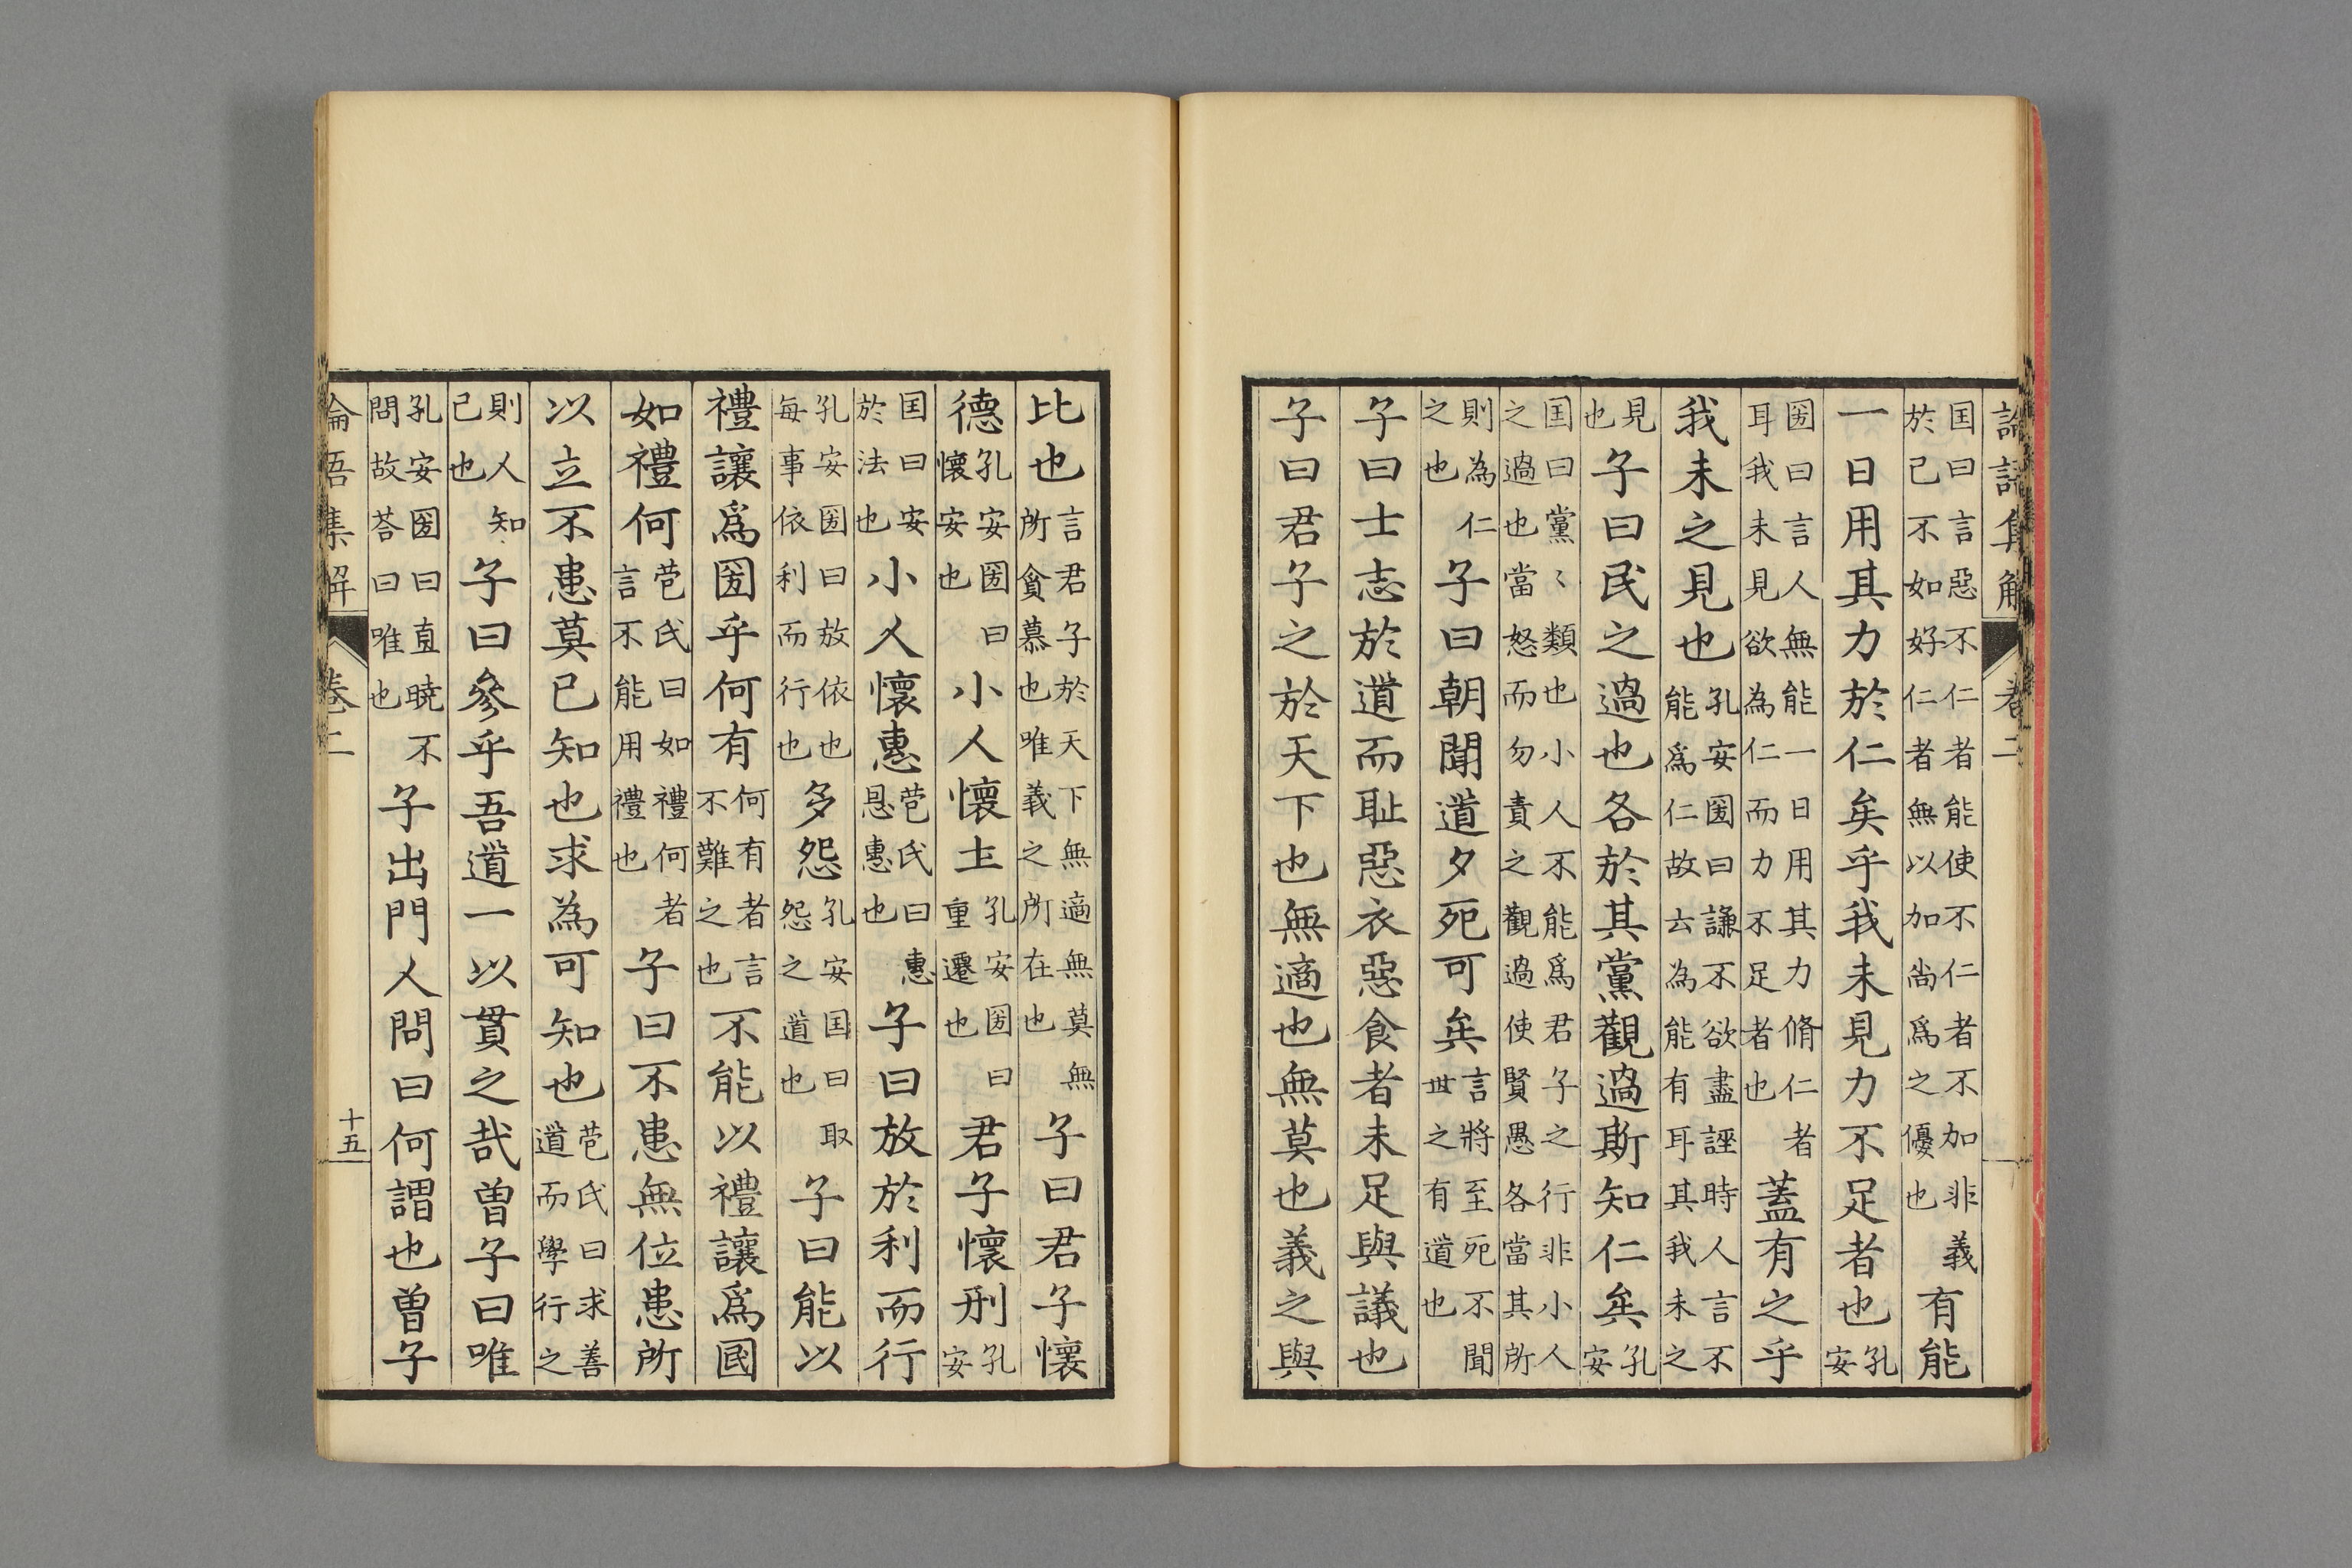 論語集解　卷二
囯曰言惡不仁者能使不仁者不加非義於己不如好仁者無以加尚爲之優也有能
一日用其力於仁矣乎我未見力不足者也孔安
圀曰言人無能一日用其力脩仁者耳我未見欲為仁而力不足者也蓋有之乎
我未之見也孔安圀曰謙不欲盡誣時人言不能爲仁故云為能有耳其我未之
見也子曰民之過也各於其黨觀過斯知仁矣孔安
囯曰黨〻類也小人不能爲君子之行非小人之過也當怒而勿責之觀過使賢愚各當其所
則為仁之也子曰朝聞道夕死可矣言將至死不聞世之有道也
子曰士志於道而耻惡衣惡食者未足與議也
子曰君子之於天下也無適也無莫也義之與
比也言君子於天下無適無莫無所貪慕也唯義之所在也子曰君子懷
德孔安圀曰懷安也小人懷土孔安圀曰重遷也君子懷刑孔安
囯曰安於法也小人懷惠苞氏曰惠恩惠也子曰放於利而行
孔安圀曰放依也每事依利而行也多怨孔安囯曰取怨之道也子曰能以
禮讓爲圀乎何有何有者言不難之也不能以禮讓爲國
如禮何苞氏曰如禮何者言不能用禮也子曰不患無位患所
以立不患莫己知也求為可知也苞氏曰求善道而學行之
則人知己也子曰參乎吾道一以貫之哉曽子曰唯
孔安圀曰直曉不問故荅曰唯也子出門人問曰何謂也曽子
論語集解　卷二　十五